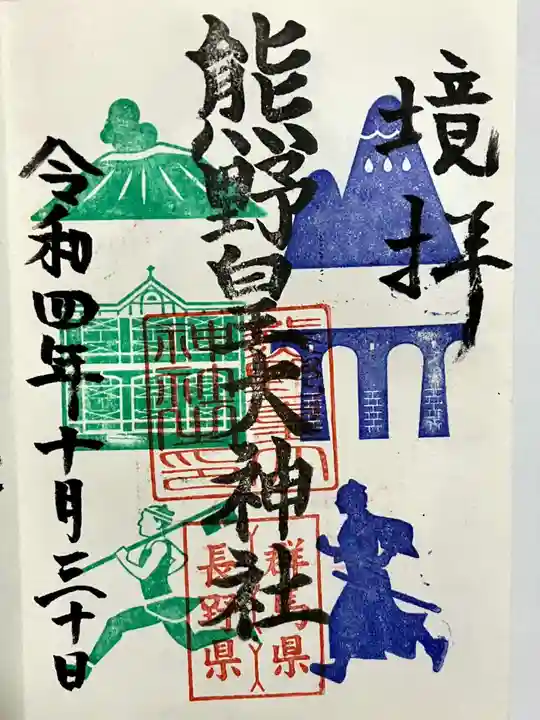 境拝
熊野皇大神社
群馬県
長野県
令和四年十月三十日